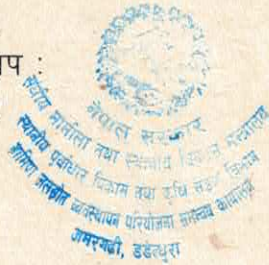 ाप :
नेपाल सरकार
संघीय मामिला तथा स्थानीय विकास मन्त्रालय
स्थानीय पूर्वाधार विकास तथा कृषि सडक विभाग
ग्रामीण जलस्रोत व्यवस्थापन परियोजना समन्वय कार्यालय
अमरगढी, डडेल्धुरा